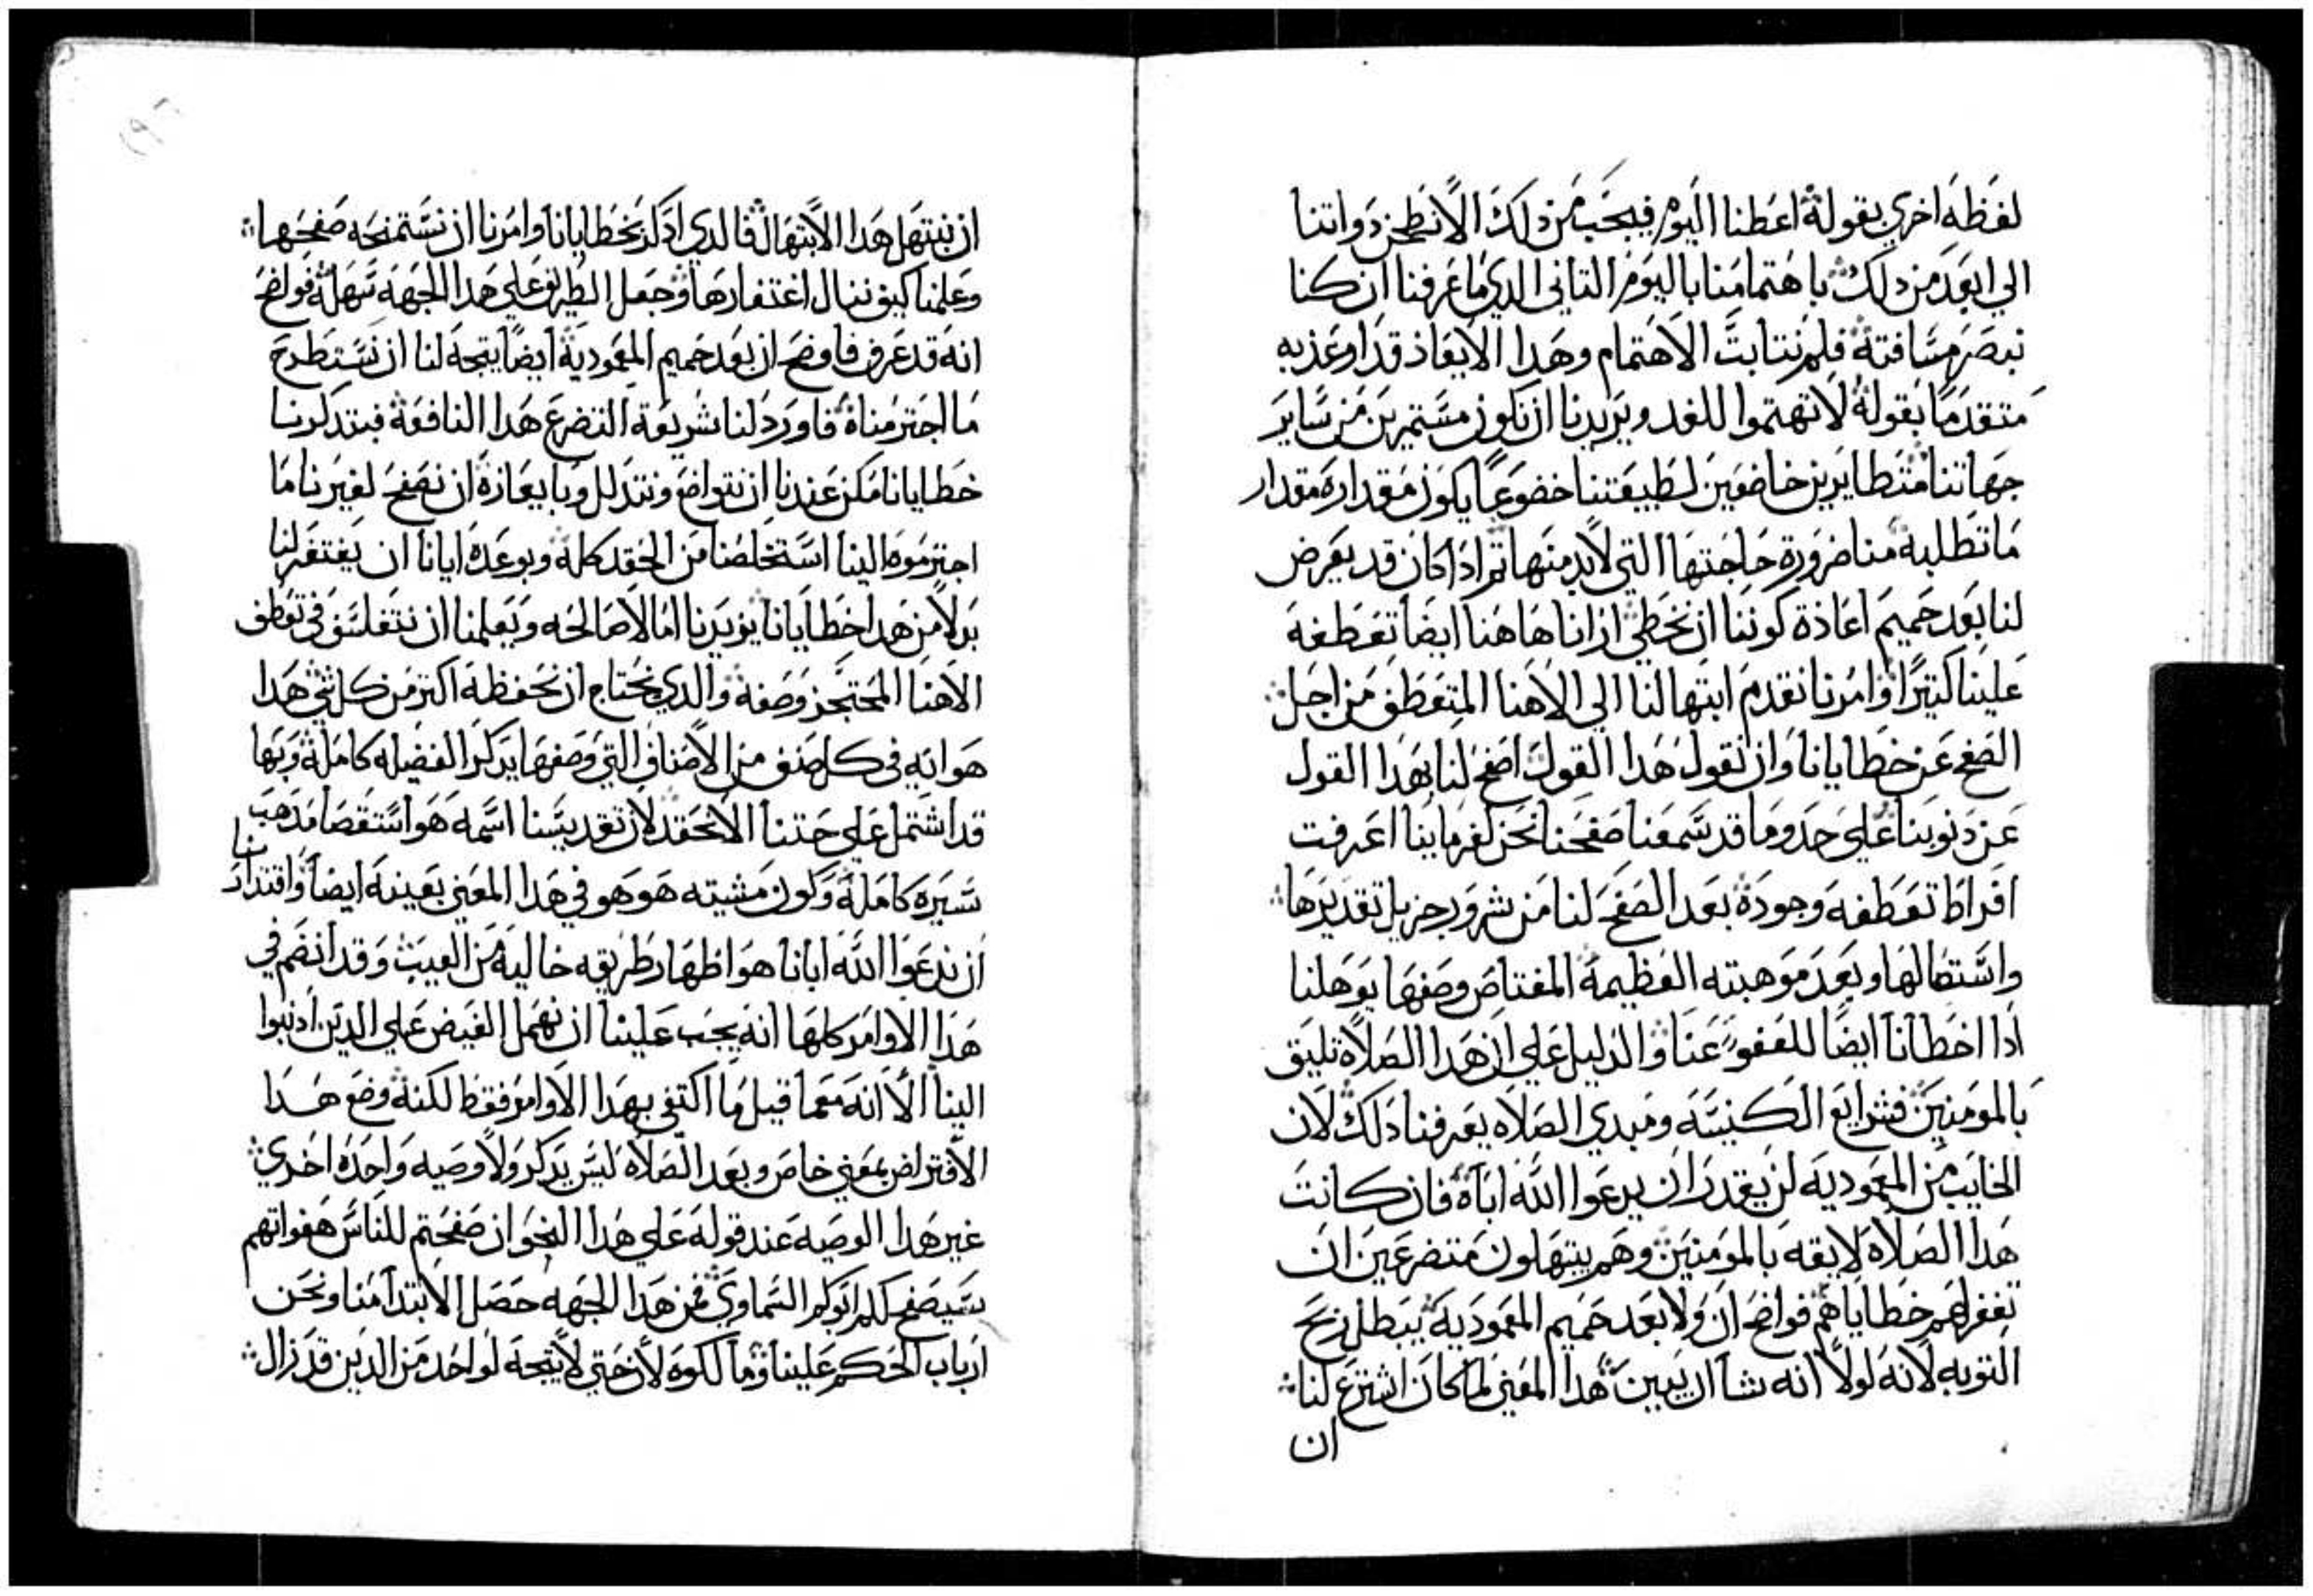 لفظه اخري بقوله اعطنا اليوم فيجب من دلك الا نطحن دواتنا
الي ابعد من دلك باهتمامنا باليوم التاني الدي ما عرفنا ان كنا
نبصر مسافته فلم نتابت الاهتمام وهدا الايعاد قد اوعد به
متقدما بقوله لا تهتموا للغد ويريدنا ان نكون مستمرين من ساير
جهاتنا متطايرين خاضعين لطبيعتنا خضوعا يكون مقداره مقدار
ما تطلبه منا ضرورة حاجتها التي لا بد منها تم ادا كان قد يعرض
لنا بعد حميم اعادة كوننا ان نخطي ارانا هاهنا ايضا تعطفه
علينا كتيرا وامرنا نقدم ابتهالنا الي الاهنا المتعطف من اجل
الصفح عن خطايانا وان نقول هدا القول اصفح لنا بهدا القول
عن دنوبنا علي حدو ما قد سمعنا صفحنا نحن لغرماينا اعرفت
افراط تعطفه وجوده بعد الصفح لنا من شرور جزيل تقديرها
واستضالها وبعد موهبته العظيمة المعتاص وصفها يوهلنا
ادا اخطانا ايضا للعفو عنا والدليل علي ان هدا الصلاه تليق
بالمومنين فشرايع الكنيسه ومبدي الصلاه يعرفنا دلك لان
الخايب من المعموديه لن يقدر ان يدعوا الله اباه فان كانت
هدا الصلاه لايقه بالمومنين وهم يبتهلون متضرعين ان
تغفر لهم خطاياهم فواضح ان ولا بعد حميم المعموديه يبطل ربح
التوبه لانه لولا انه شا ان يبين هدا المعني لما كان اشترع لنا
ان
ان نبتهل هدا الابتهال فالدي ادكر بخطايانا وامرنا ان نستمنحه صفحها
وعلمنا كيف ننال اغتفارها وجعل الطريق علي هدا الجهه سهله فواضح
انه قد عرف فاوضح ان بعد حميم المعموديه ايضا يتجه لنا ان نستطرح
ما اجترمناه فاورد لنا شريعة التضرع هدا النافعه فبتدكرنا
خطايانا مكن عندنا ان نتواضع ونتدلل وبايعازه ان نصفح لغيرنا ما
اجترموه الينا استخلصنا من الحقد كله وبوعده ايانا ان يغتفر لنا
بدلا من هدا خطايانا يويدنا امالا صالحه ويعلمنا ان نتفلسف في تعطف
الاهنا المحتجز وصفه والدي يحتاج ان نحفظه اكتر من كل شي هدا
هو انه في كل صنف من الاصناف التي وصفها يدكر الفضيله كامله وبها
قد اشتمل علي حتنا الا نحقد لان تقديسنا اسمه هو استقصا مدهب
سيره كامله وكون مشيته هو هو في هدا المعني بعينه ايضا واقتدارنا
ان ندعوا الله ابانا هو اظهار طريقه خاليه من العيب وقد انضم في
هدا الاوامر كلها انه يجب علينا ان نهمل الغيض علي الدين ادنبوا
الينا الا انه معما قيل ما اكتفي بهدا الاوامر فقط لكنه وضع هدا
الافتراض بمعني خاص وبعد الصلاه ليس يدكر ولا وصيه واحده اخري
غير هدا الوصيه عند قوله علي هدا النحو ان صفحتم للناس هفواتهم
سيصفح لكم ابوكم السماوي فمن هدا الجهه حصل الابتدا منا ونحن
ارباب الحكم علينا وما لكوه لان حتي لا يتجه لواحد من الدين قد زال